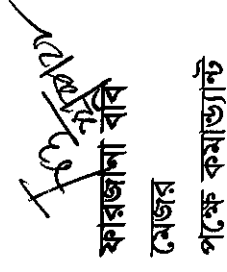 ফারজানা ববি
মেজর
পক্ষে কমান্ড্যান্ট